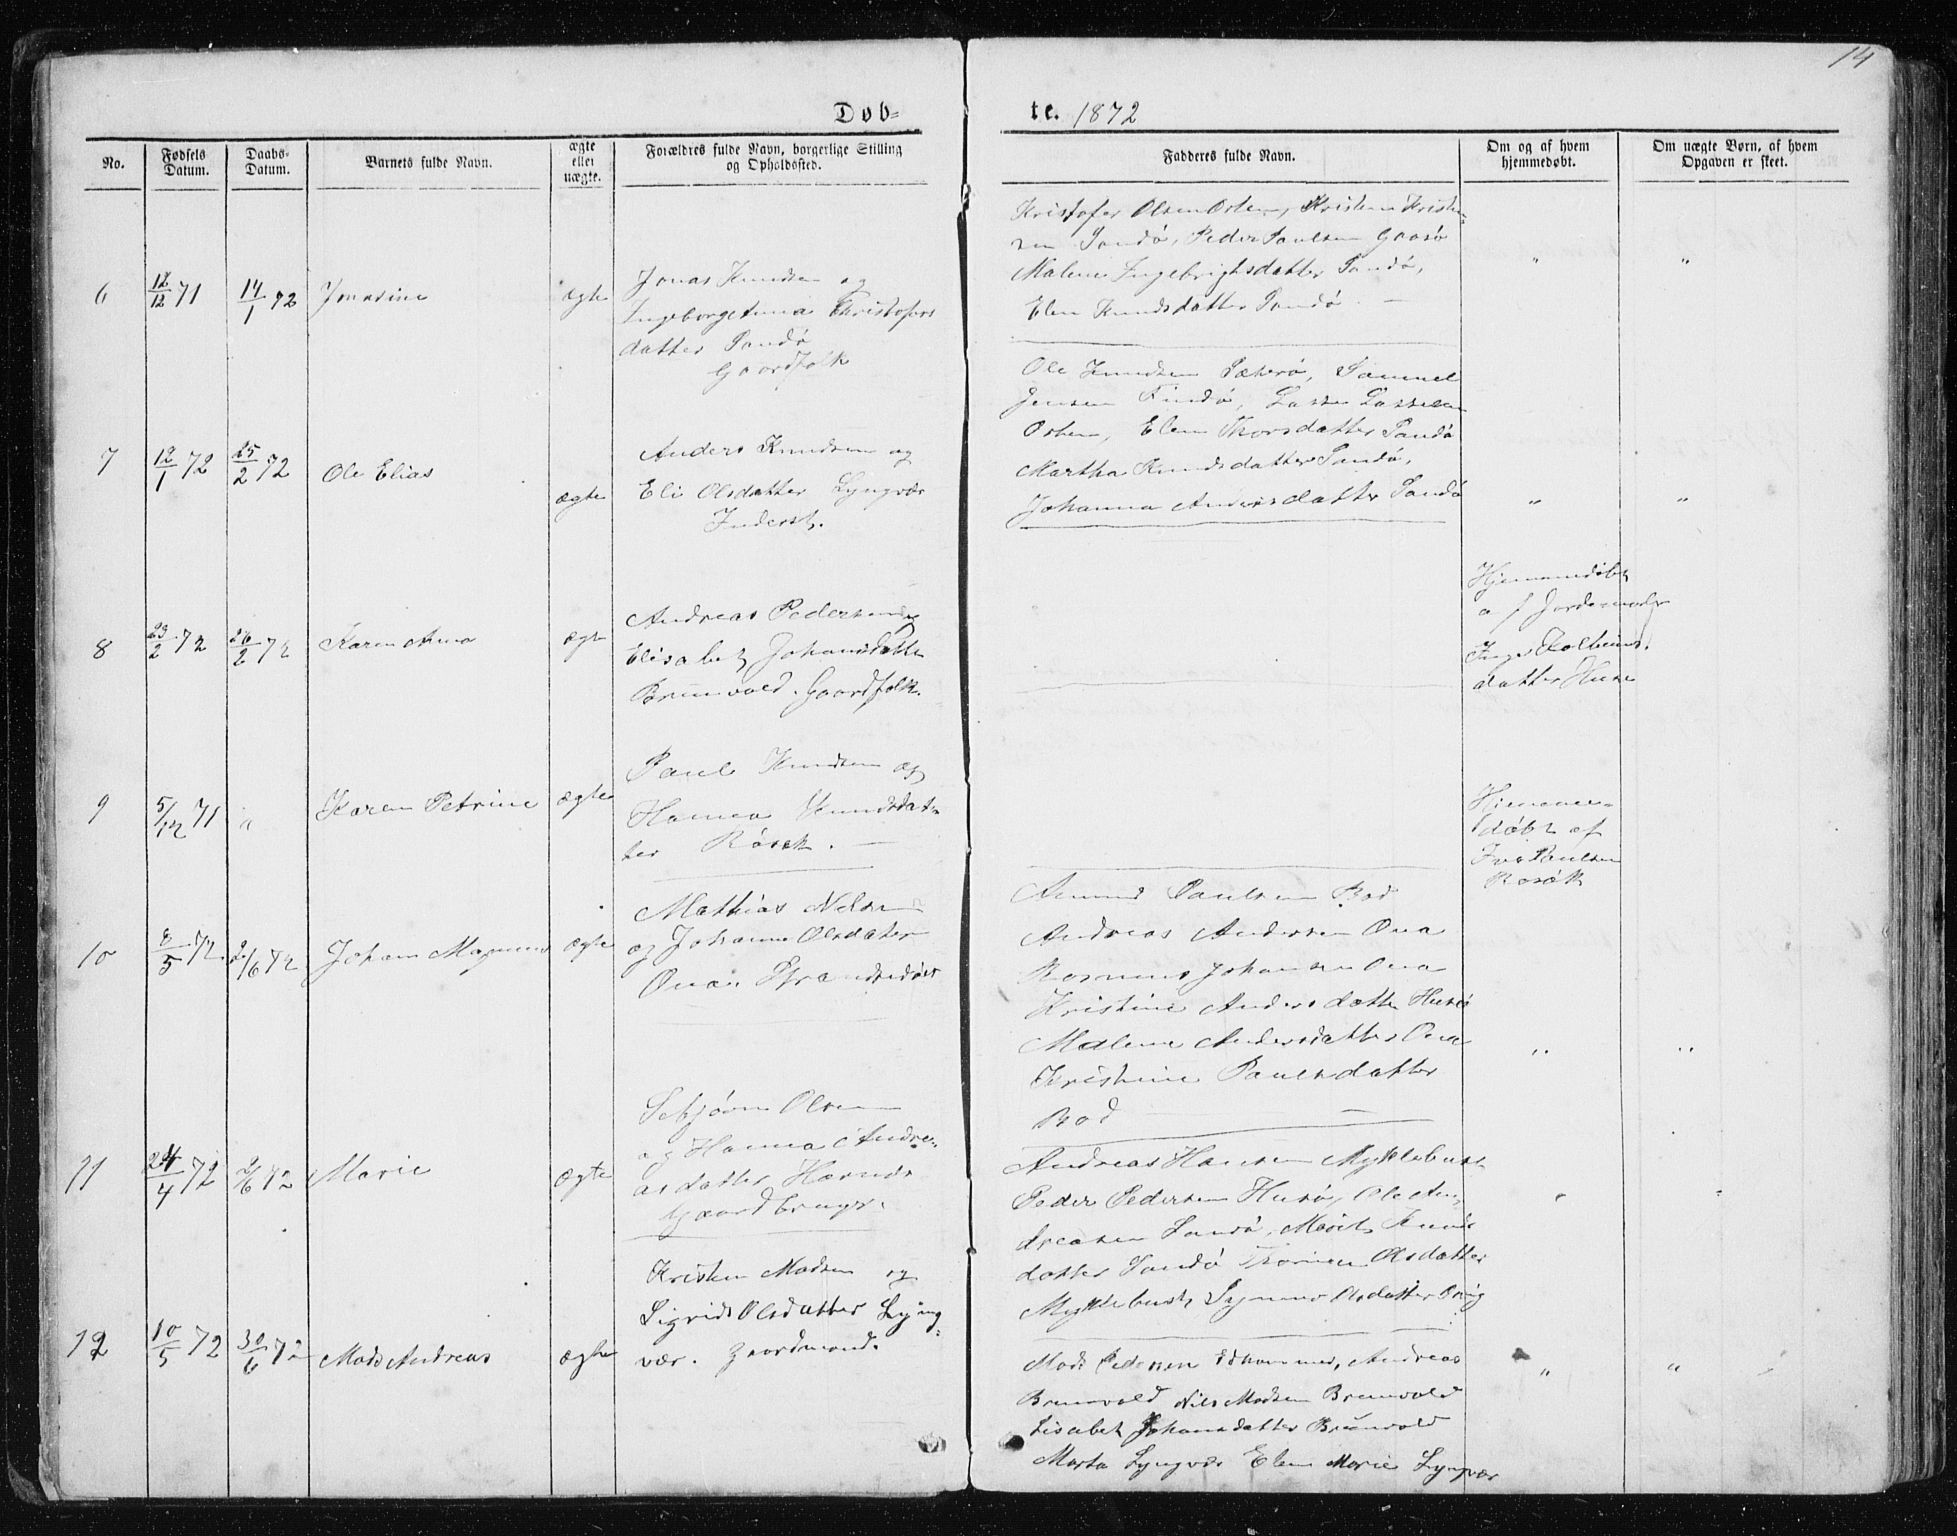 14
Døb-
te. 1872
No.
Fødsels Datum.
Daabs- Datum.
Barnets fulde Navn.
ægte eller uægte.
Forældres fulde Navn, borgerlige Stilling
og Opholdssted.
Fadderes fulde Navn.
Om og af hvem
hjemmedøbt.
Om uægte Børn, af hvem
Opgaven er skeet.
6
12/12 71
14/1 72
Jonasine
ægte
Jonas Knudsen og
Ingeborg Anna Christofers
datter Sandø
Gaardfolk
Kristofer Olsen Orten, Kristen Kriste-
sen Sandø, Peder Paulsen Gaasø
Malene Ingebrigtsdatter Sandø,
Elen Knudsdatter Sandø. —
"
"
7
12/1 72
25/2 72
Ole Elias
ægte
Anders Knudsen og
Eli Olsdatter Lyngvær
Inderst.
Ole Knudsen Sæterø, Samuel
Jensen Findø, Lasse Lassesen
Orten, Elen Thorsdatter Sandø
Martha Knudsdatter Sandø,
Johanna Andersdatter Sandø
"
"
8
23/2 72
26/2 72
Karen Anna
ægte
Andreas Pedersen og
Elisabet Johansdatter
Brunvold. Gaardfolk.
Hjemmedøbt
af Jordemoder
Inger Kolbeins-
datter Huse
9
5/12 71
"
Karen Petrine
ægte
Paul Knudsen og
Hanna Knudsdat-
ter Røsok. —
Hjemme-
døbt af
Iver Paulsen
Rosøk
10
8/5 72
2/6 72
Johan Magnus
ægte
Mathias Nelsen
og Johanna Olsdatter
Ona. Strandsidder
Amund Paulsen Bod
Andreas Andersen Ona
Rasmus Johansen Ona
Kristine Andersdatter Husø
Malene Andersdatter Ona
Kristine Paulsdatter
Bod —
"
"
11
24/4 72
2/6 72
Marie
ægte
Sebjørn Olsen
og Hanna Andre-
asdatter Harnes
Gaardbruger.
Andreas Hansen Myklebust
Peder Pedersen Husø, Ole An-
dreasen Sandø, Marit Knuds
datter Sandø Thorine Olsdatter
Myklebust, Synnøv Olsdatter
"
"
12
10/5 72
30/6 72
Mads Andreas
ægte
Kristen Madsen og
Sigrid Olsdatter Lyng-
vær. Gaardmand.
Mads Pedersen Idhammer, Andreas
Brunvold Nils Madsen Brunvold
Lisabet Johansdatter Brunvold
Marta Lyngvær Elen Marie Lyngvær
"
"